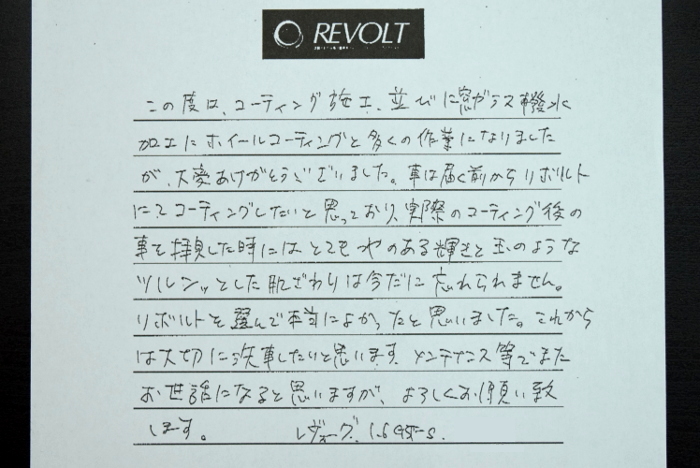 REVOLT
この度は、コーティング施工、並びに窓ガラス撥水
加工にホイールコーティングと多くの作業になりました
が、大変ありがとうございました。車は届く前からリボルト
にてコーティングしたいと思っており、実際のコーティング後の
車を拝見した時にはとてもつやのある輝きと玉のような
ツルンッとした肌ざわりは今だに忘れられません。
リボルトを選んで本当によかったと思いました。これから
は大切に洗車したいと思います。メンテナンス等でまた
お世話になると思いますが、よろしくお願い致
します。 レヴォーグ 1.6GT-S.